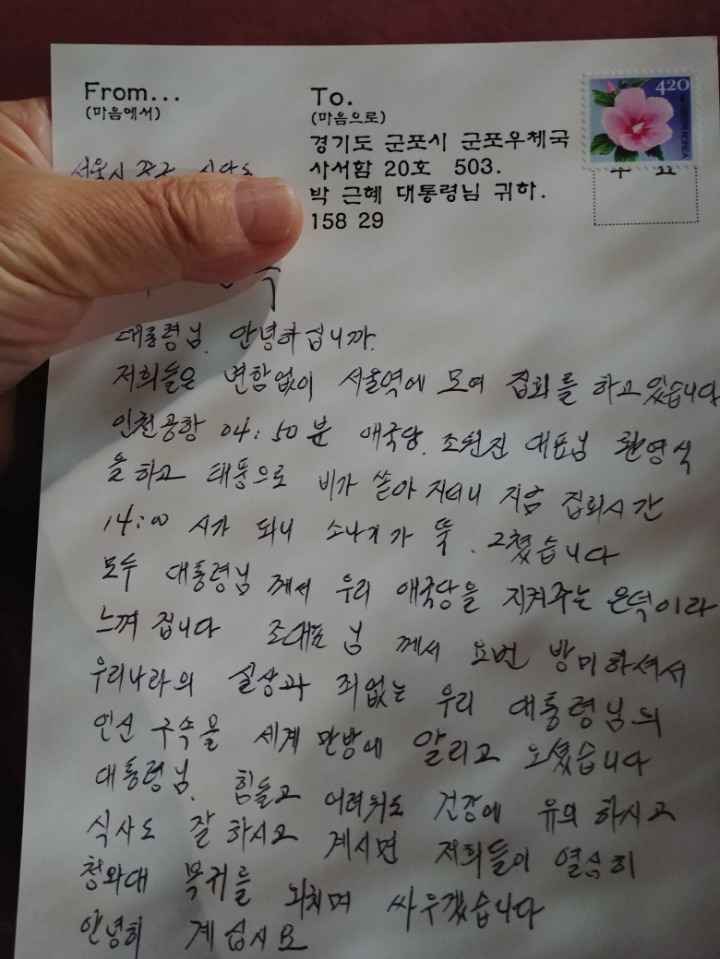 From...
(마음에서)
To.
(마음으로)
경기도 군포시 군포우체국
사서함 20호 503.
박 근혜 대통령님 귀하.
158 29
420
서울시
대통령님. 안녕하십니까.
저희들은 변함없이 서울역에 모여 집회를 하고있습니다
인천공항 04:50분 애국당. 조원진 대표님 환영식
을 하고 태풍으로 비가 쏟아 지더니 지금 집회시간
14:00 시가 되니 소나기가 뚝. 그쳤습니다
모두 대통령님 께서 우리 애국당을 지켜주는 은덕이라
느껴 집니다 조대표 님 께서 요번 방미하셔서
우리나라의 실상과 죄없는 우리 대통령님의
인신 구속을 세계 만방에 알리고 오셨습니다
대통령님. 힘들고 어려워도 건강에 유의 하시고
식사도 잘 하시고 계시면 저희들이 열심히
청와대 복귀를 외치며 싸우겠습니다
안녕히 계십시요